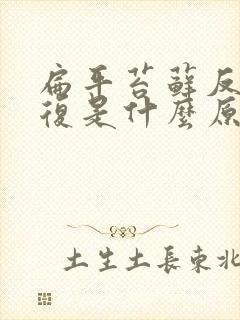 扁平苔蘚反
復是什麼原
土生土長東北